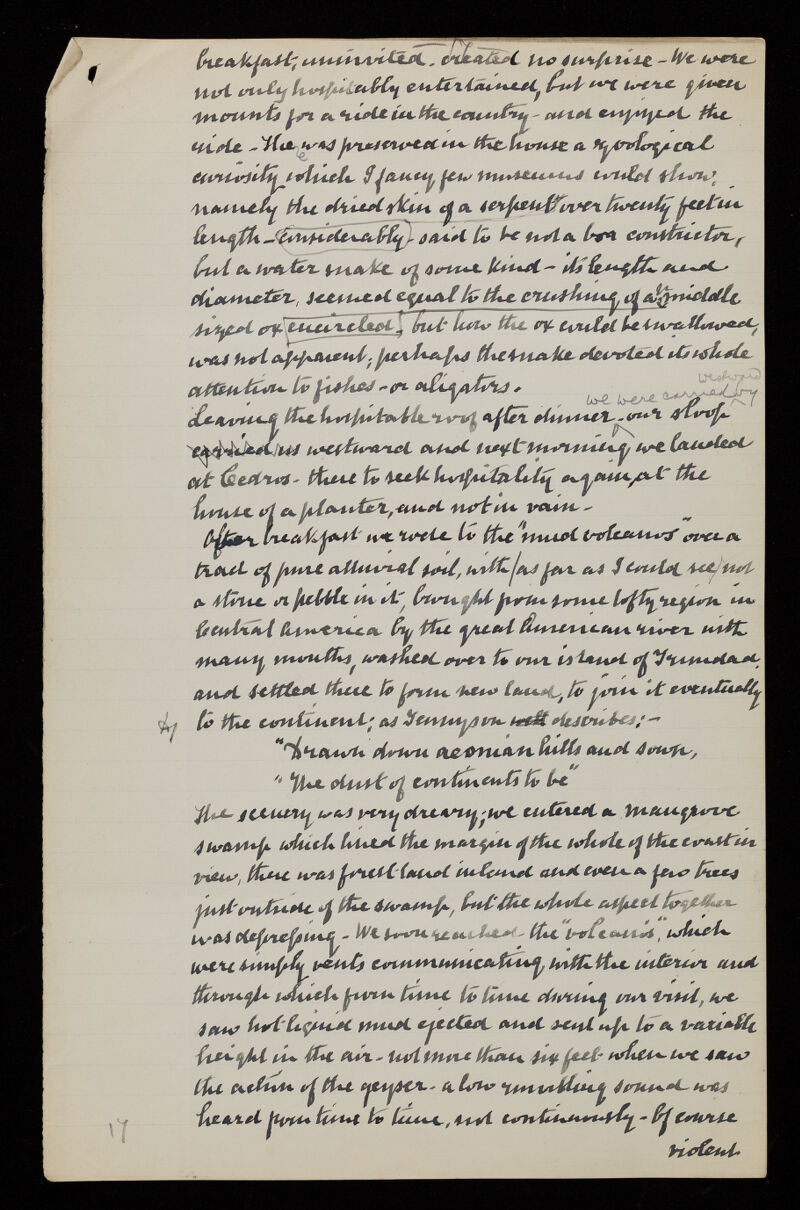 breakfast, uninvited - created no surprise - We were
not only hospitably entertained, but we were given
mounts for a ride in the country - and enjoyed the
ride - There was preserved in the house a zoological
curiosity which I fancy few museums could show,
namely the dried skin of a serpent over twenty feet in
length - considerably - said to be not a boa constrictor,
but a water snake of some kind - its length and
diameter, seemed equal to the crushing, of a middle
sized ox encircled, but how the ox could be swallowed,
was not apparent; perhaps the snake devoted its whole
attention to fishes - or aligators.
westward
we were carried by
Leaving the hospitable roof after dinner - our sloop
carried us westward and next morning we landed
at Cedros - there to seek hospitality again, at the
house of a planter, and not in vain -
After breakfast we rode to the "mud volcanos" over a
tract of pure alluvial soil, with (as far as I could see) not
a stone or pebble in it, brought from some lofty region in
Central America by the great American river with
many mouths, washed over to our island of Trinidad,
and settled there to form new land, to join it eventually
to the continent; as Tennyson well describes; -
"Drawn down aeonian hills and sown,
"The dust of continents to be"
The scenery was very dreary; we entered a mangrove
swamp which lined the margin of the whole of the coast in
view, there was forest land inland and even a few trees
just outside of the swamp, but the whole aspect together
was depressing - We soon reached the "volcanos", which
were simply vents communicating, with the interior and
through which from time to time during our visit, we
saw hot liquid mud ejected and sent up to a variable
height in the air - not more than six feet when we saw
the action of the geyser - a low rumbling sound was
heard from time to time, not continuously - Of course
17
violent